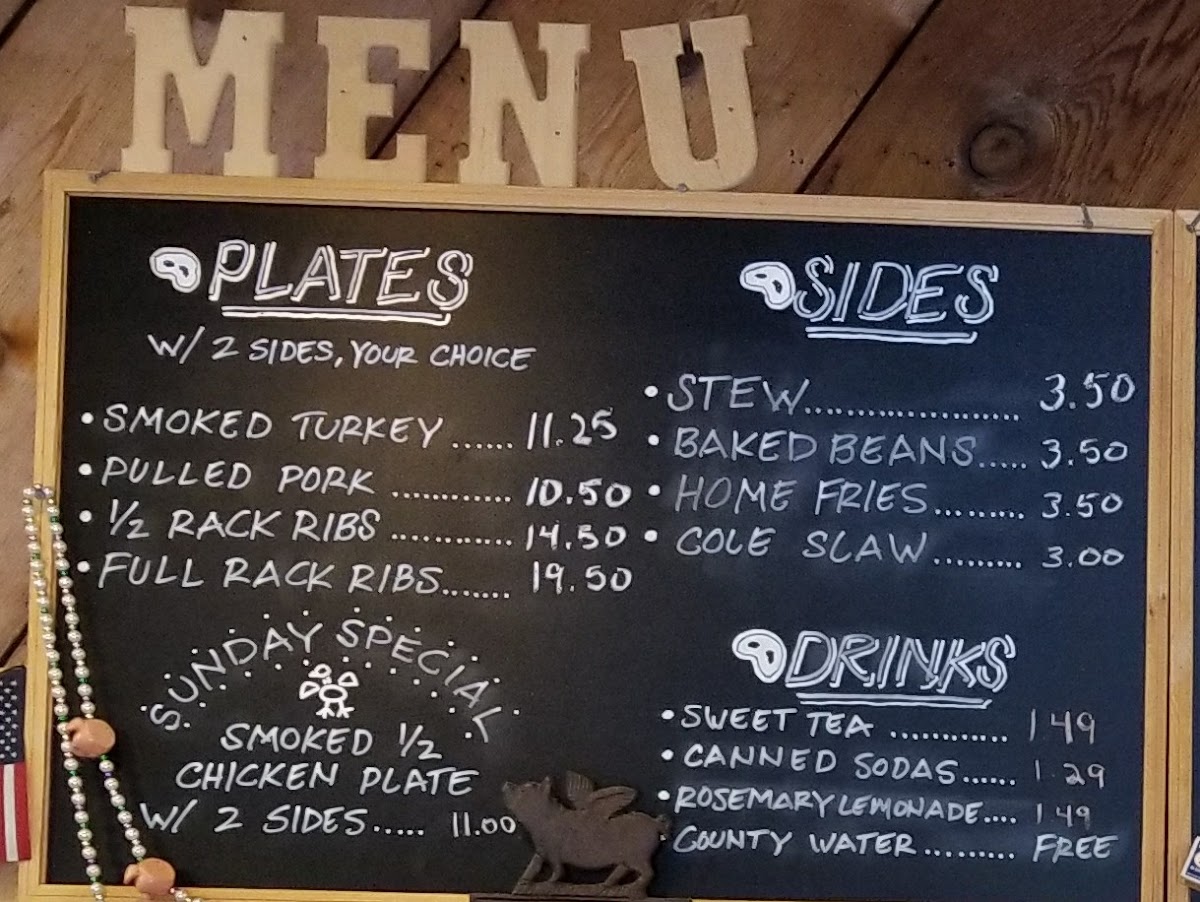 MENU
PLATES
W/ 2 SIDES, YOUR CHOICE
• SMOKED TURKEY ...... 11.25
• PULLED PORK ............ 10.50
• 1/2 RACK RIBS ............ 14.50
• FULL RACK RIBS....... 19.50
SUNDAY SPECIAL
SMOKED 1/2
CHICKEN PLATE
W/ 2 SIDES..... 11.00
SIDES
• STEW..................... 3.50
• BAKED BEANS..... 3.50
• HOME FRIES......... 3.50
• COLE SLAW ......... 3.00
DRINKS
• SWEET TEA ............ 1.49
• CANNED SODAS...... 1.29
• ROSEMARY LEMONADE.... 1.49
• COUNTY WATER ......... FREE